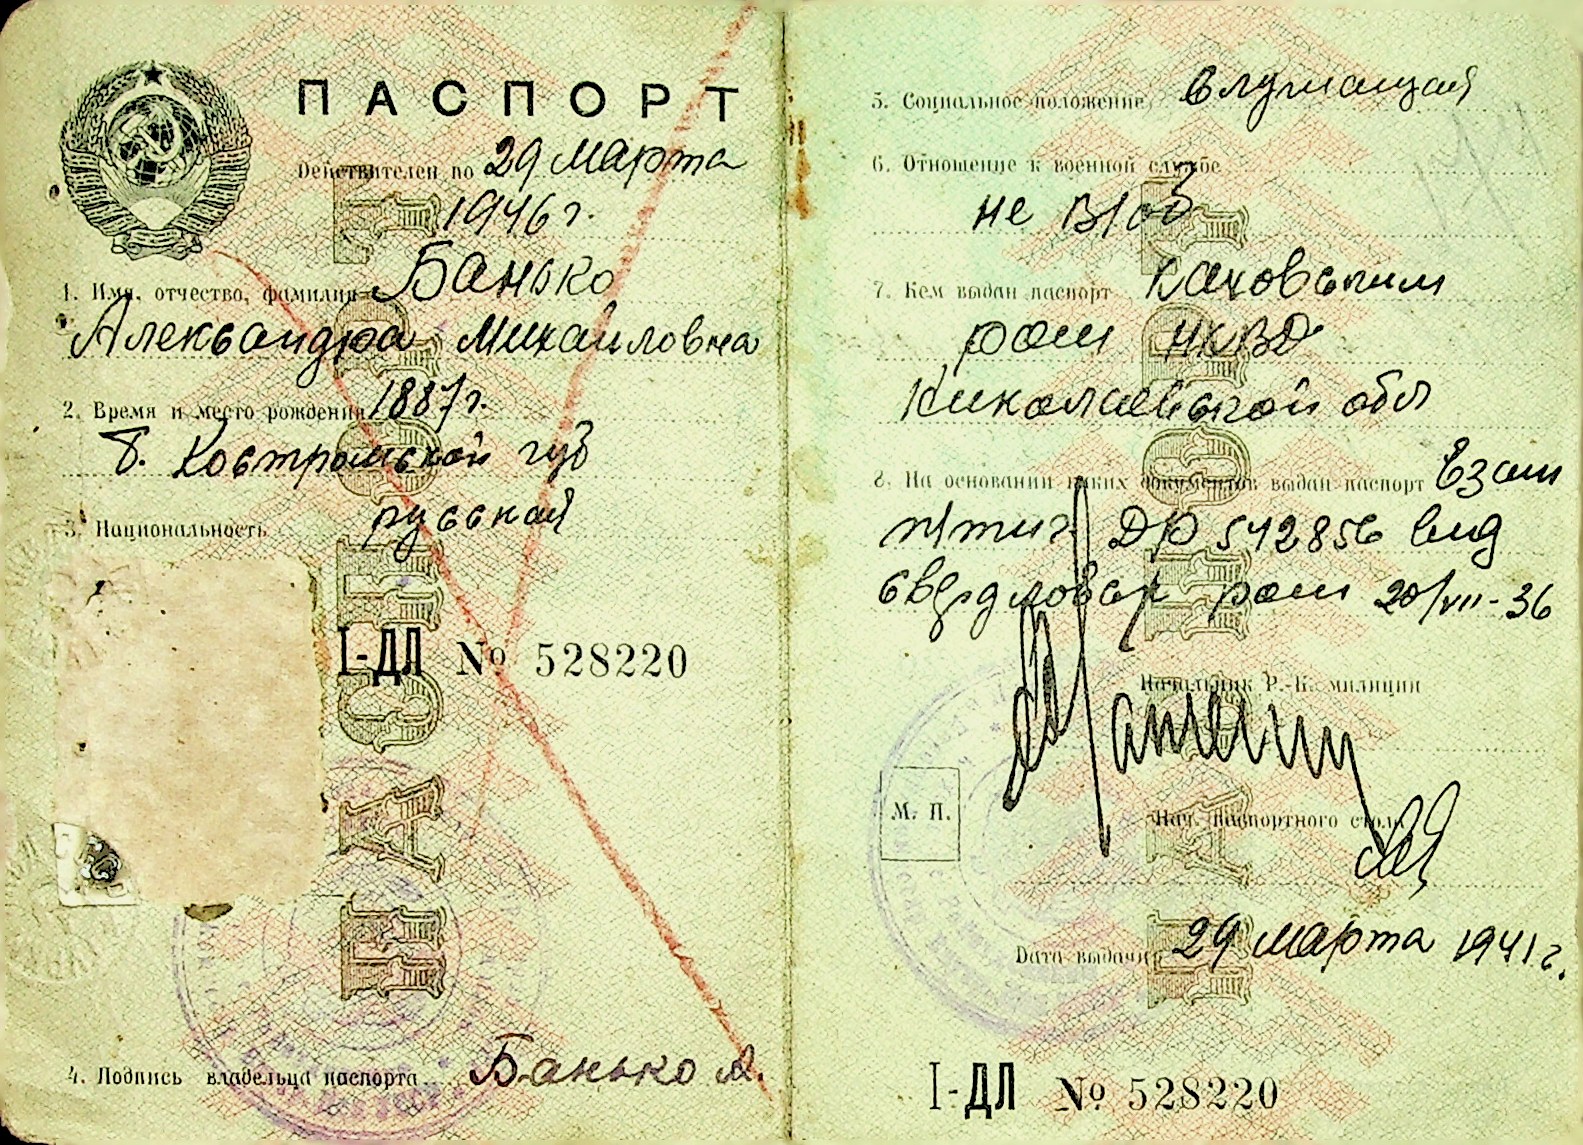 ПАСПОРТ
Действителен по 29 марта
1946 г.
1. Имя, отчество, фамилия Банько
Александра Михайловна
2. Время и место рождения 1887 г.
б. Костромской губ
3. Национальность русская
I-ДЛ № 528220
4. Подпись владельца паспорта Банько А.
5. Социальное положение служащая
6. Отношение к военной службе
не в/об
7. Кем выдан паспорт Каховским
рαйм НКВД
Николаевской обл
8. На основании каких документов выдан паспорт Взам
ДР 542856 выд
20/VII-36
Начальник Р.-К. милиции
М. П.
Нач. паспортного стола
Дата выдачи 29 марта 1941 г.
I-ДЛ № 528220
ПАСПОРТ
ПАСПОРТ